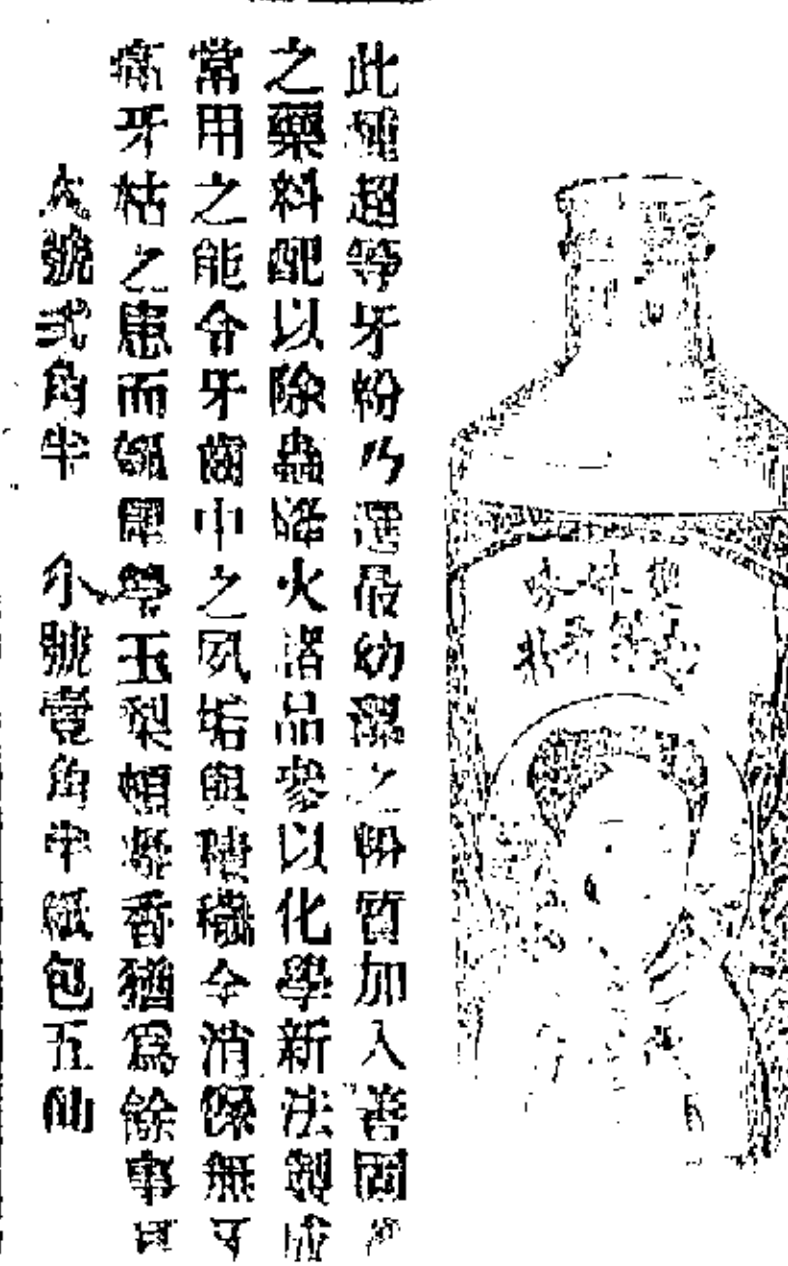 此種超等牙粉乃選最幼潔之粉質加入善固
之藥料配以除蟲降火諸品參以化學新法製成
常用之能令牙齒中之夙垢與積穢全消係無牙
痛牙枯之患而 玉 香猶爲餘事耳
大號弍角半 小號壹角半紙包五仙